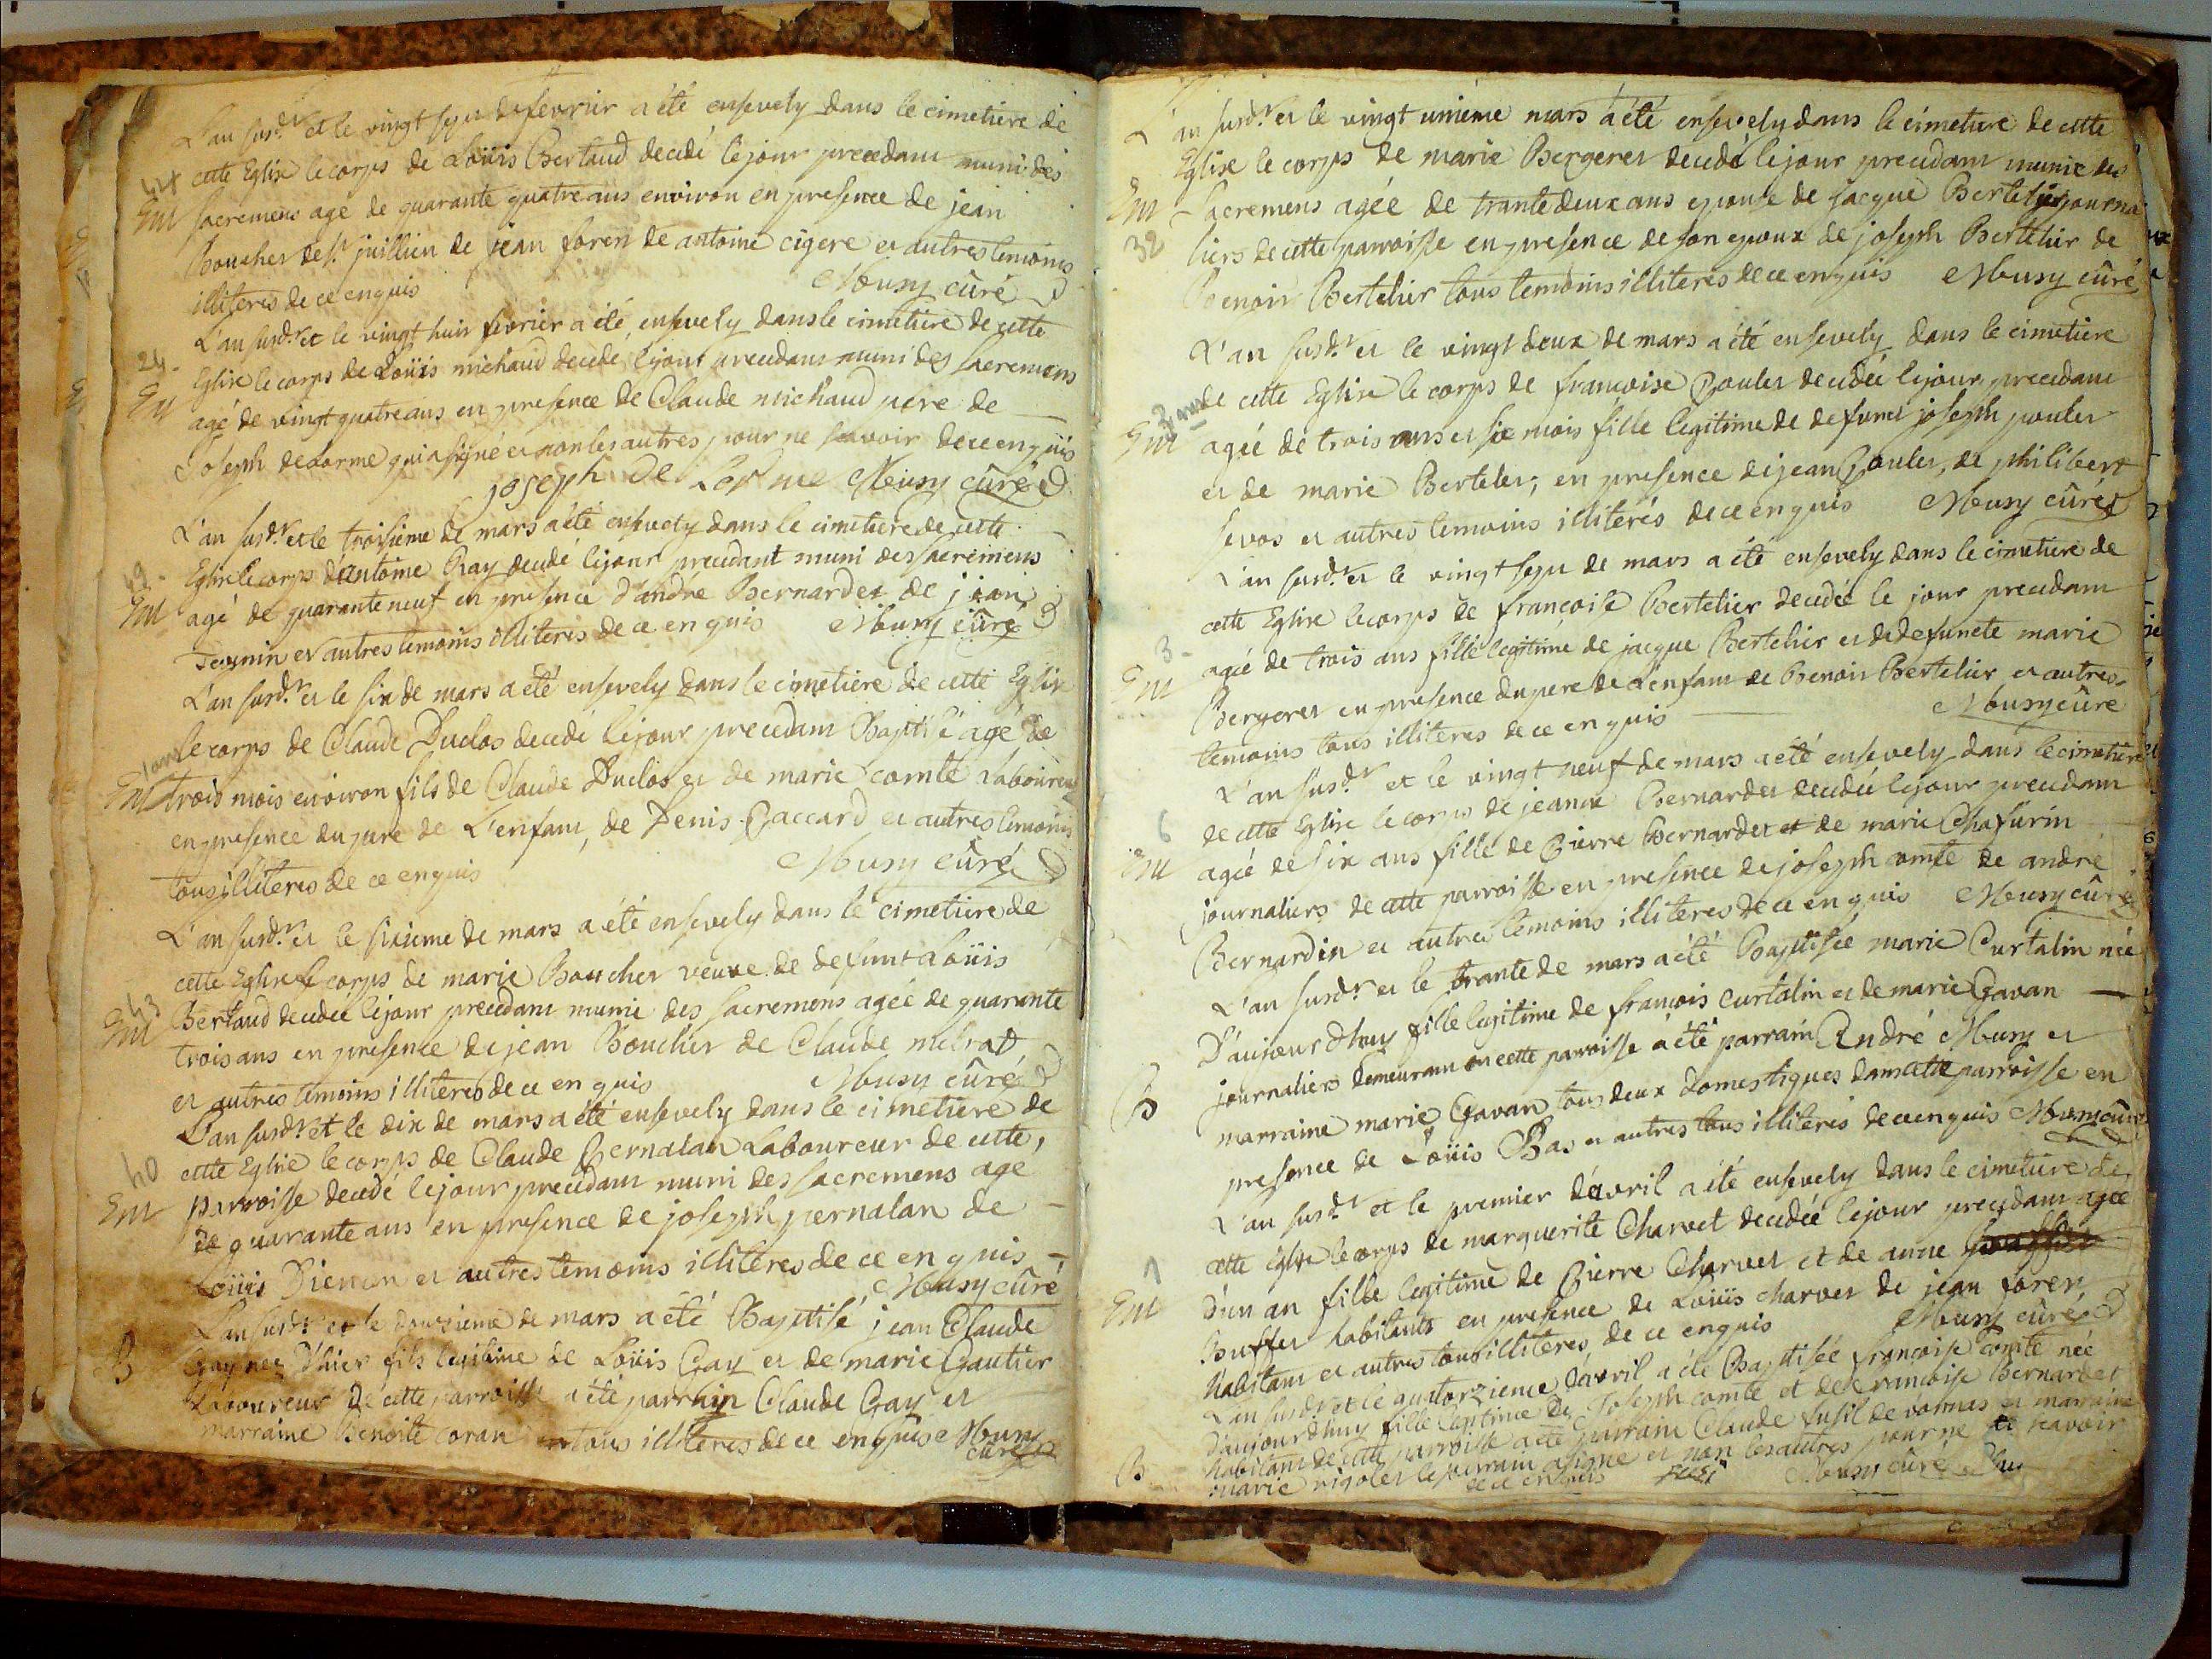 L'an susd.t et le vingt sept de fevrier a été ensevely dans le cimetiere de
44 cette Eglise le corps de Loüis Bertaud decedé le jour precedant muni des
Em sacremens agé de quarante quatre ans environ en presence de jean
Boucher de s.t juillien de jean foren de antoine cigere et autres temoins
illiteres de ce enquis Musy cûré
L'an susd.t et le vingt huit fevrier a été ensevely dans le cimetiere de cette
24 Eglise le corps de Loüis michaud decedé le jour precedant muni des sacremens
Em agé de vingt quatre ans en presence de Claude michaud pere de
Joseph delorme qui a signé et non les autres pour ne scavoir de ce enquis
joseph De Lorme Musy cûré
L'an susd.t et le troisieme de mars a été ensevely dans le cimetiere de cette
49 Eglise le corps d'antoine Ray decedé le jour precedant muni des sacremens
Em agé de quarante neuf en presence d'andré Bernardet de jean
et autres temoins illiteres de ce enquis Musy cûré
L'an susd.t et le six de mars a été ensevely dans le cimetiere de cette Eglise
le corps de Claude Duclos decedé le jour precedant Baptisé agé de
Em trois mois environ fils de Claude Duclos et de marie comte Laboureur
en presence du pere de L'enfant, de Denis Paccard et autres temoins
tous illiteres de ce enquis Musy cûré
L'an susd.t et le sixieme de mars a été ensevely dans le cimetiere de
cette Eglise le corps de marie Boucher veuve de defunt Loüis
43 Em Bertaud decedée le jour precedant munie des sacremens agée de quarante
trois ans en presence de jean Boucher de Claude melrat
et autres temoins illiteres de ce enquis Musy cûré
L'an susd.t et le dix de mars a été ensevely dans le cimetiere de
40 cette Eglise le corps de Claude Pernalan Laboureur de cette
Em parroisse decedé le jour precedant muni des sacremens agé
de quarante ans en presence de joseph pernalan de
Loüis Dienon et autres temoins illiteres de ce enquis
Musy cûré
L'an susd.t et le douzieme de mars a été Baptisé jean Claude
B Gay nee d'hier fils legitime de Loüis Gay et de marie Gautier
Laboureur de cette parroisse a été parrain Claude Gay et
marraine Benoite coran tous illiteres de ce enquis Musy
cûré
L'an susd.t et le vingt unième mars a été ensevely dans le cimetiere de cette
Eglise le corps de marie Bergeret decedé le jour precedant munie des
Em sacremens agée de trante deux ans epouse de jacque Bertelier journa
32 liers de cette parroisse en presence de son epoux de joseph Bertelier de
Benoit Bertelier tous temoins illiteres de ce enquis Musy cûré
L'an susd.t et le vingt deux de mars a été ensevely dans le cimetiere
3 ans de cette Eglise le corps de francoise Poulet decedée le jour precedant
Em agée de trois ans et six mois fille legitime de defunct joseph poulet
et de marie Bertelet, en presence de jean Poulet, de philibert
sevos et autres temoins illiterés de ce enquis Musy cûré
L'an susd.t et le vingt sept de mars a été ensevely dans le cimetiere de
cette Eglise le corps de francoise Bertelier decedée le jour precedant
3 agée de trois ans fille legitime de jacque Bertelier et de defuncte marie
Em Bergeret en presence du pere de l'enfant de Benoit Bertelier et autres
temoins tous illiteres de ce enquis Musy cûré
L'an susd.t et le vingt neuf de mars a été ensevely dans le cimetiere
6 de cette Eglise le corps de jeanne Bernardet decedée le jour precedant
Em agée de six ans fille de Pierre Bernardet et de marie Chafurin
journaliers de cette parroisse en presence de joseph comte de andre
Bernardin et autres temoins illiteres de ce enquis Musy cûré
L'an susd.t et le trante de mars a été Baptisée marie Curtalin née
D'aujourdhuy fille legitime de francois curtalin et de marie Gavan
B journaliers demeurant en cette parroisse a été parrain André Musy et
marraine marie Gavan tous deux domestiques dans cette parroisse en
presence de Loüis Bas et autres tous illiteres de ce enquis Musy cûré
L'an susd.t et le premier d'avril a été ensevely dans le cimetiere de
1 cette Eglise le corps de marguerite Charvet decedée le jour precedant agée
Em D'un an fille legitime de Pierre Charvet et de anne
Buffet habitants en presence de Loüis charvet de jean foren
habitant et autres tous illiteres de ce enquis Musy cûré
L'an susd.t et le quatorzieme d'avril a été Baptisée francoise comte née
D'aujourdhuy fille legitime De Joseph comte et de francoise Bernardet
habitant de cette parroisse a été parrain Claude fusil de vonnas et marraine
B marie rigolet le parrain a signé et non les autres pour ne scavoir
de ce enquis Musy cûré